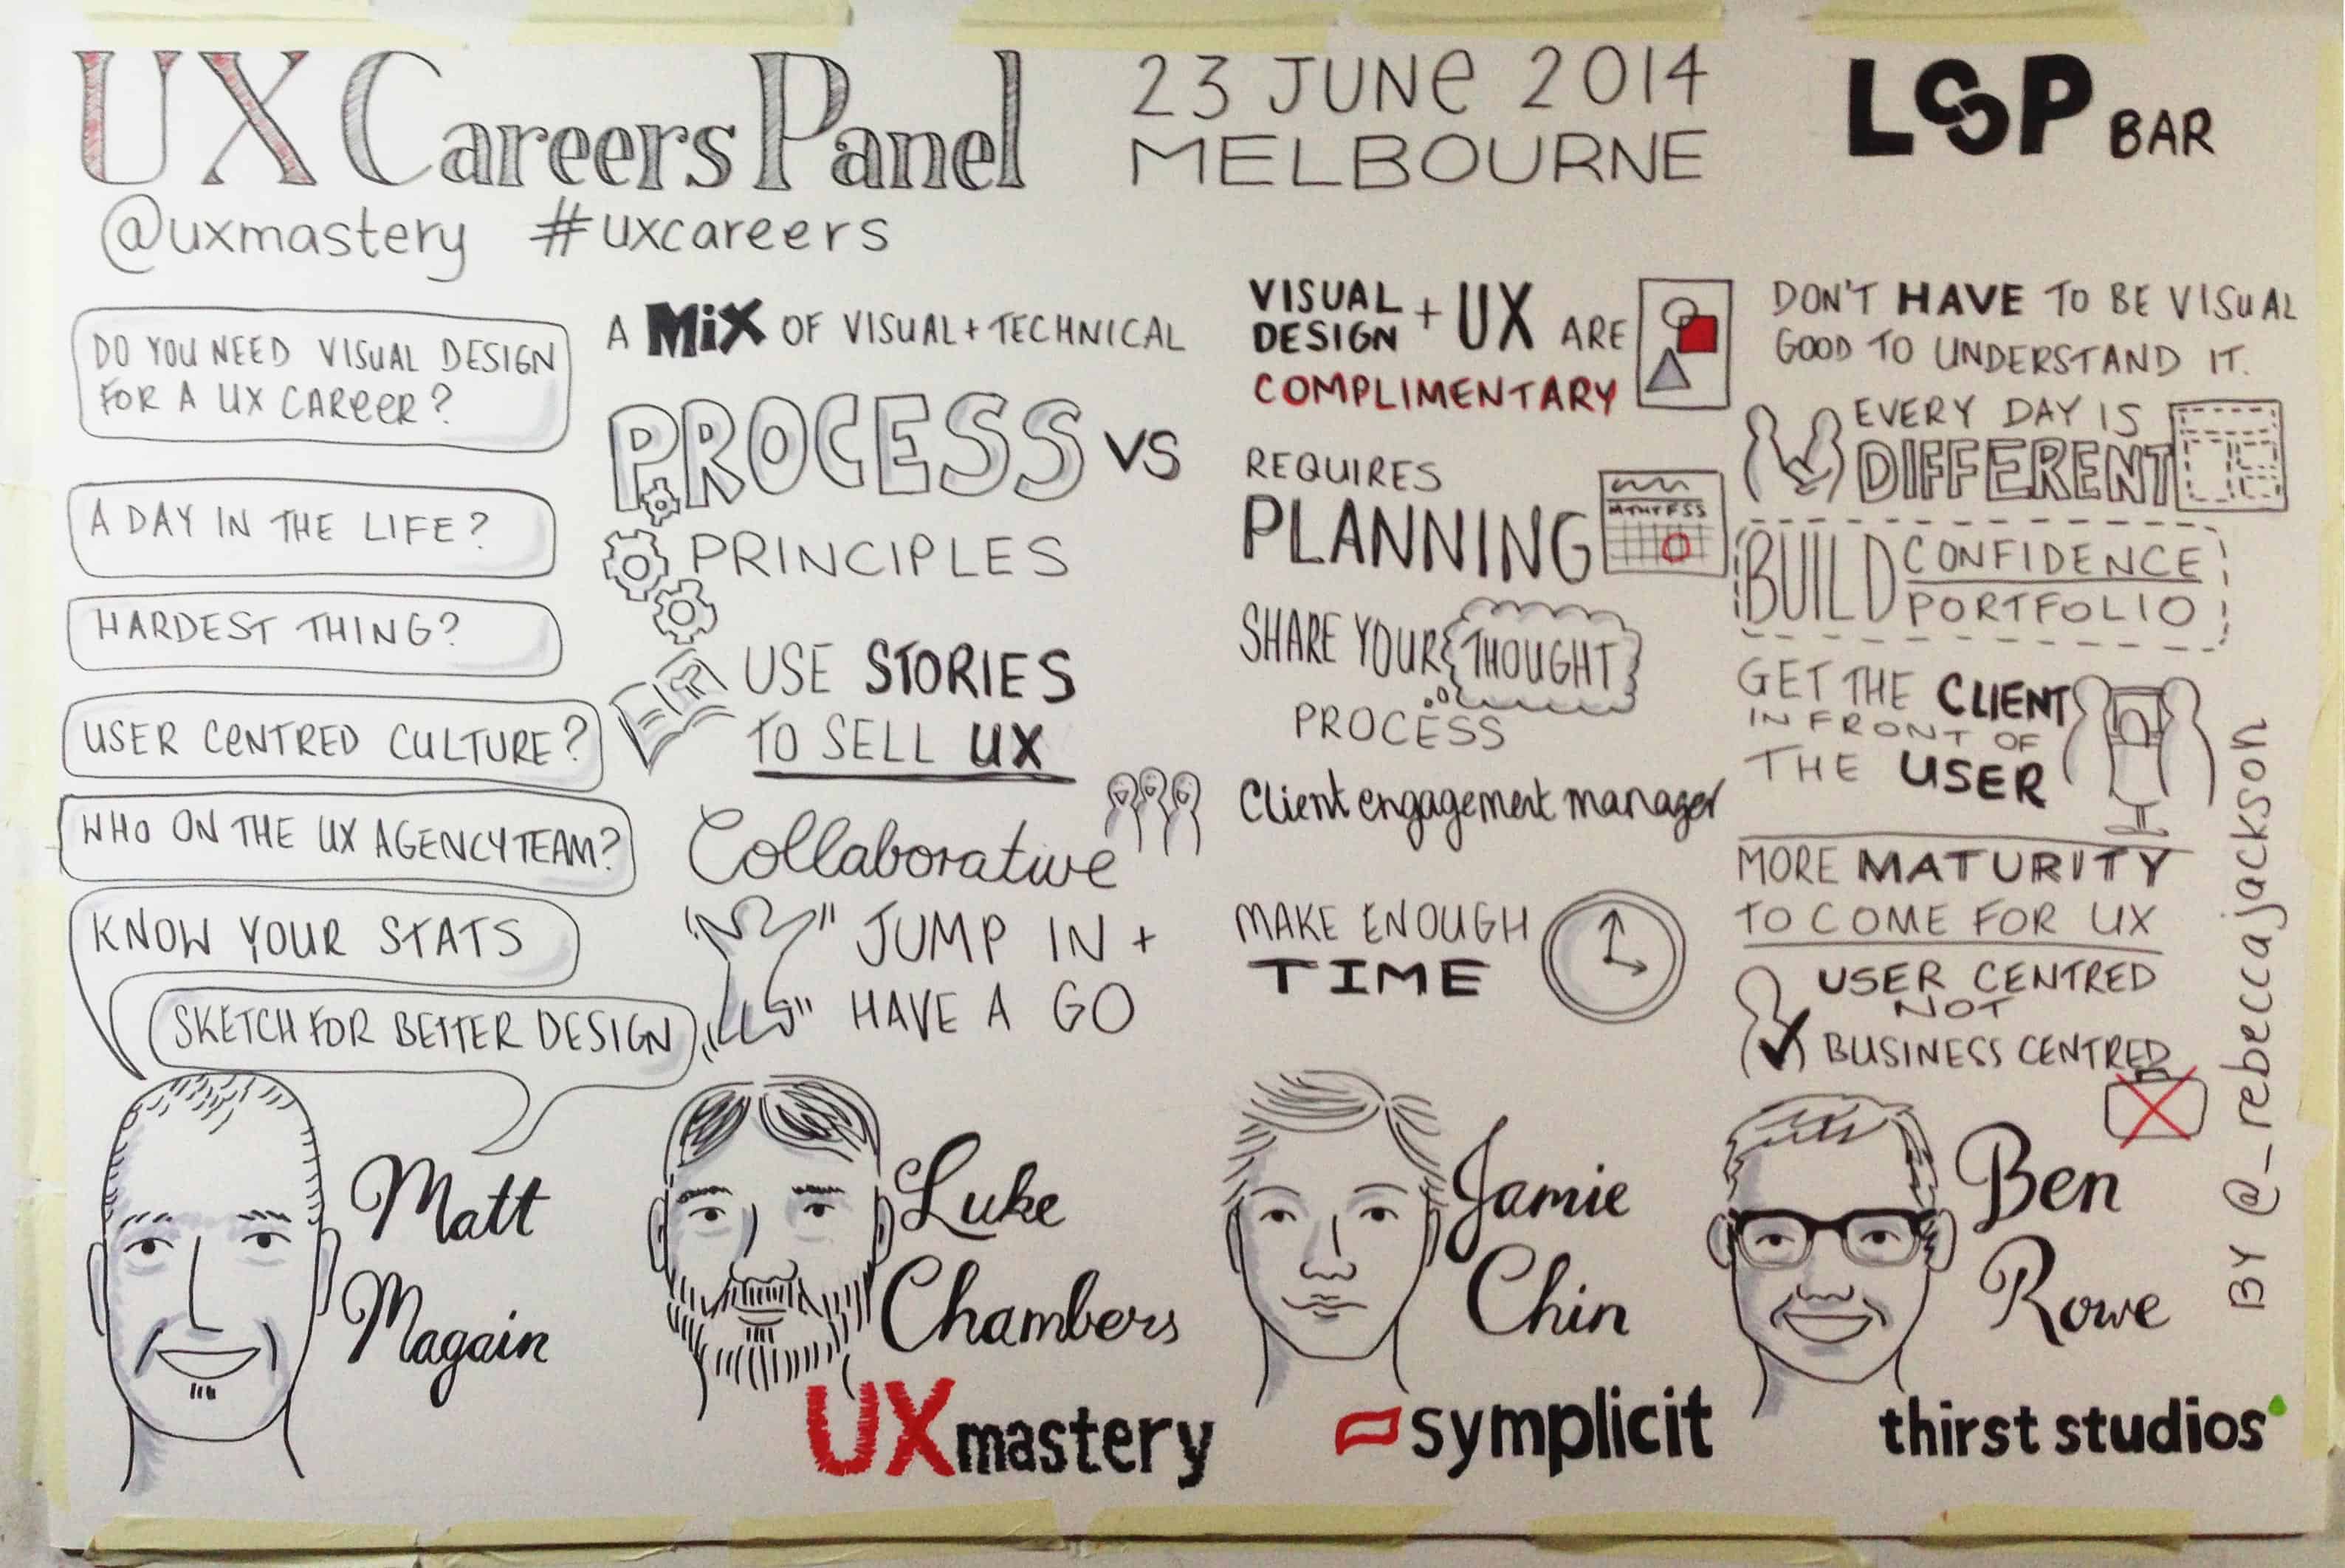 UX Careers Panel
@uxmastery #uxcareers
23 JUNE 2014
MELBOURNE
LOOP BAR
DO YOU NEED VISUAL DESIGN
FOR A UX CAREER?
A DAY IN THE LIFE?
HARDEST THING?
USER CENTRED CULTURE?
WHO ON THE UX AGENCY TEAM?
KNOW YOUR STATS
SKETCH FOR BETTER DESIGN
Matt
Magain
A MIX OF VISUAL + TECHNICAL
PROCESS VS
PRINCIPLES
USE STORIES
TO SELL UX
Collaborative
JUMP IN +
HAVE A GO
Luke
Chambers
UXmastery
VISUAL
DESIGN + UX ARE
COMPLIMENTARY
REQUIRES
PLANNING
MTWTFSS
SHARE YOUR THOUGHT
PROCESS
Client engagement manager
MAKE ENOUGH
TIME
Jamie
Chin
symplicit
DON'T HAVE TO BE VISUAL
GOOD TO UNDERSTAND IT.
EVERY DAY IS
DIFFERENT
BUILD CONFIDENCE
PORTFOLIO
GET THE CLIENT
IN FRONT OF
THE USER
MORE MATURITY
TO COME FOR UX
USER CENTRED
NOT
BUSINESS CENTRED
Ben
Rowe
thirst studios
BY @_rebeccajackson